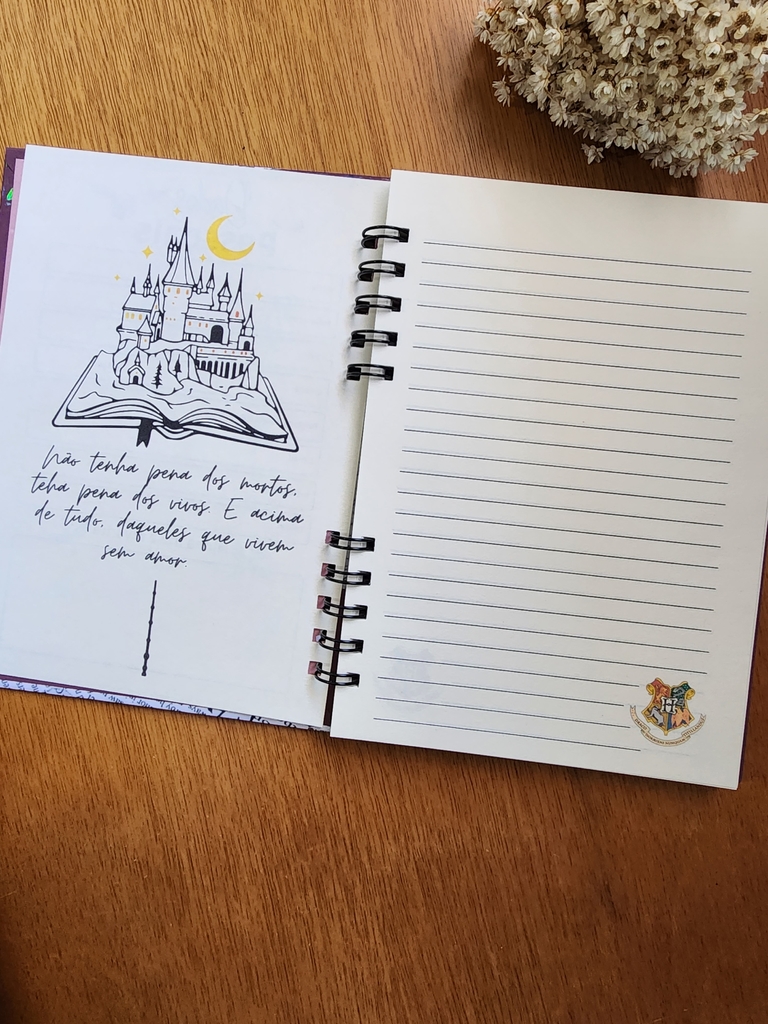 Não tenha pena dos mortos,
teha pena dos vivos. E acima
de tudo, daqueles que vivem
sem amor.
H